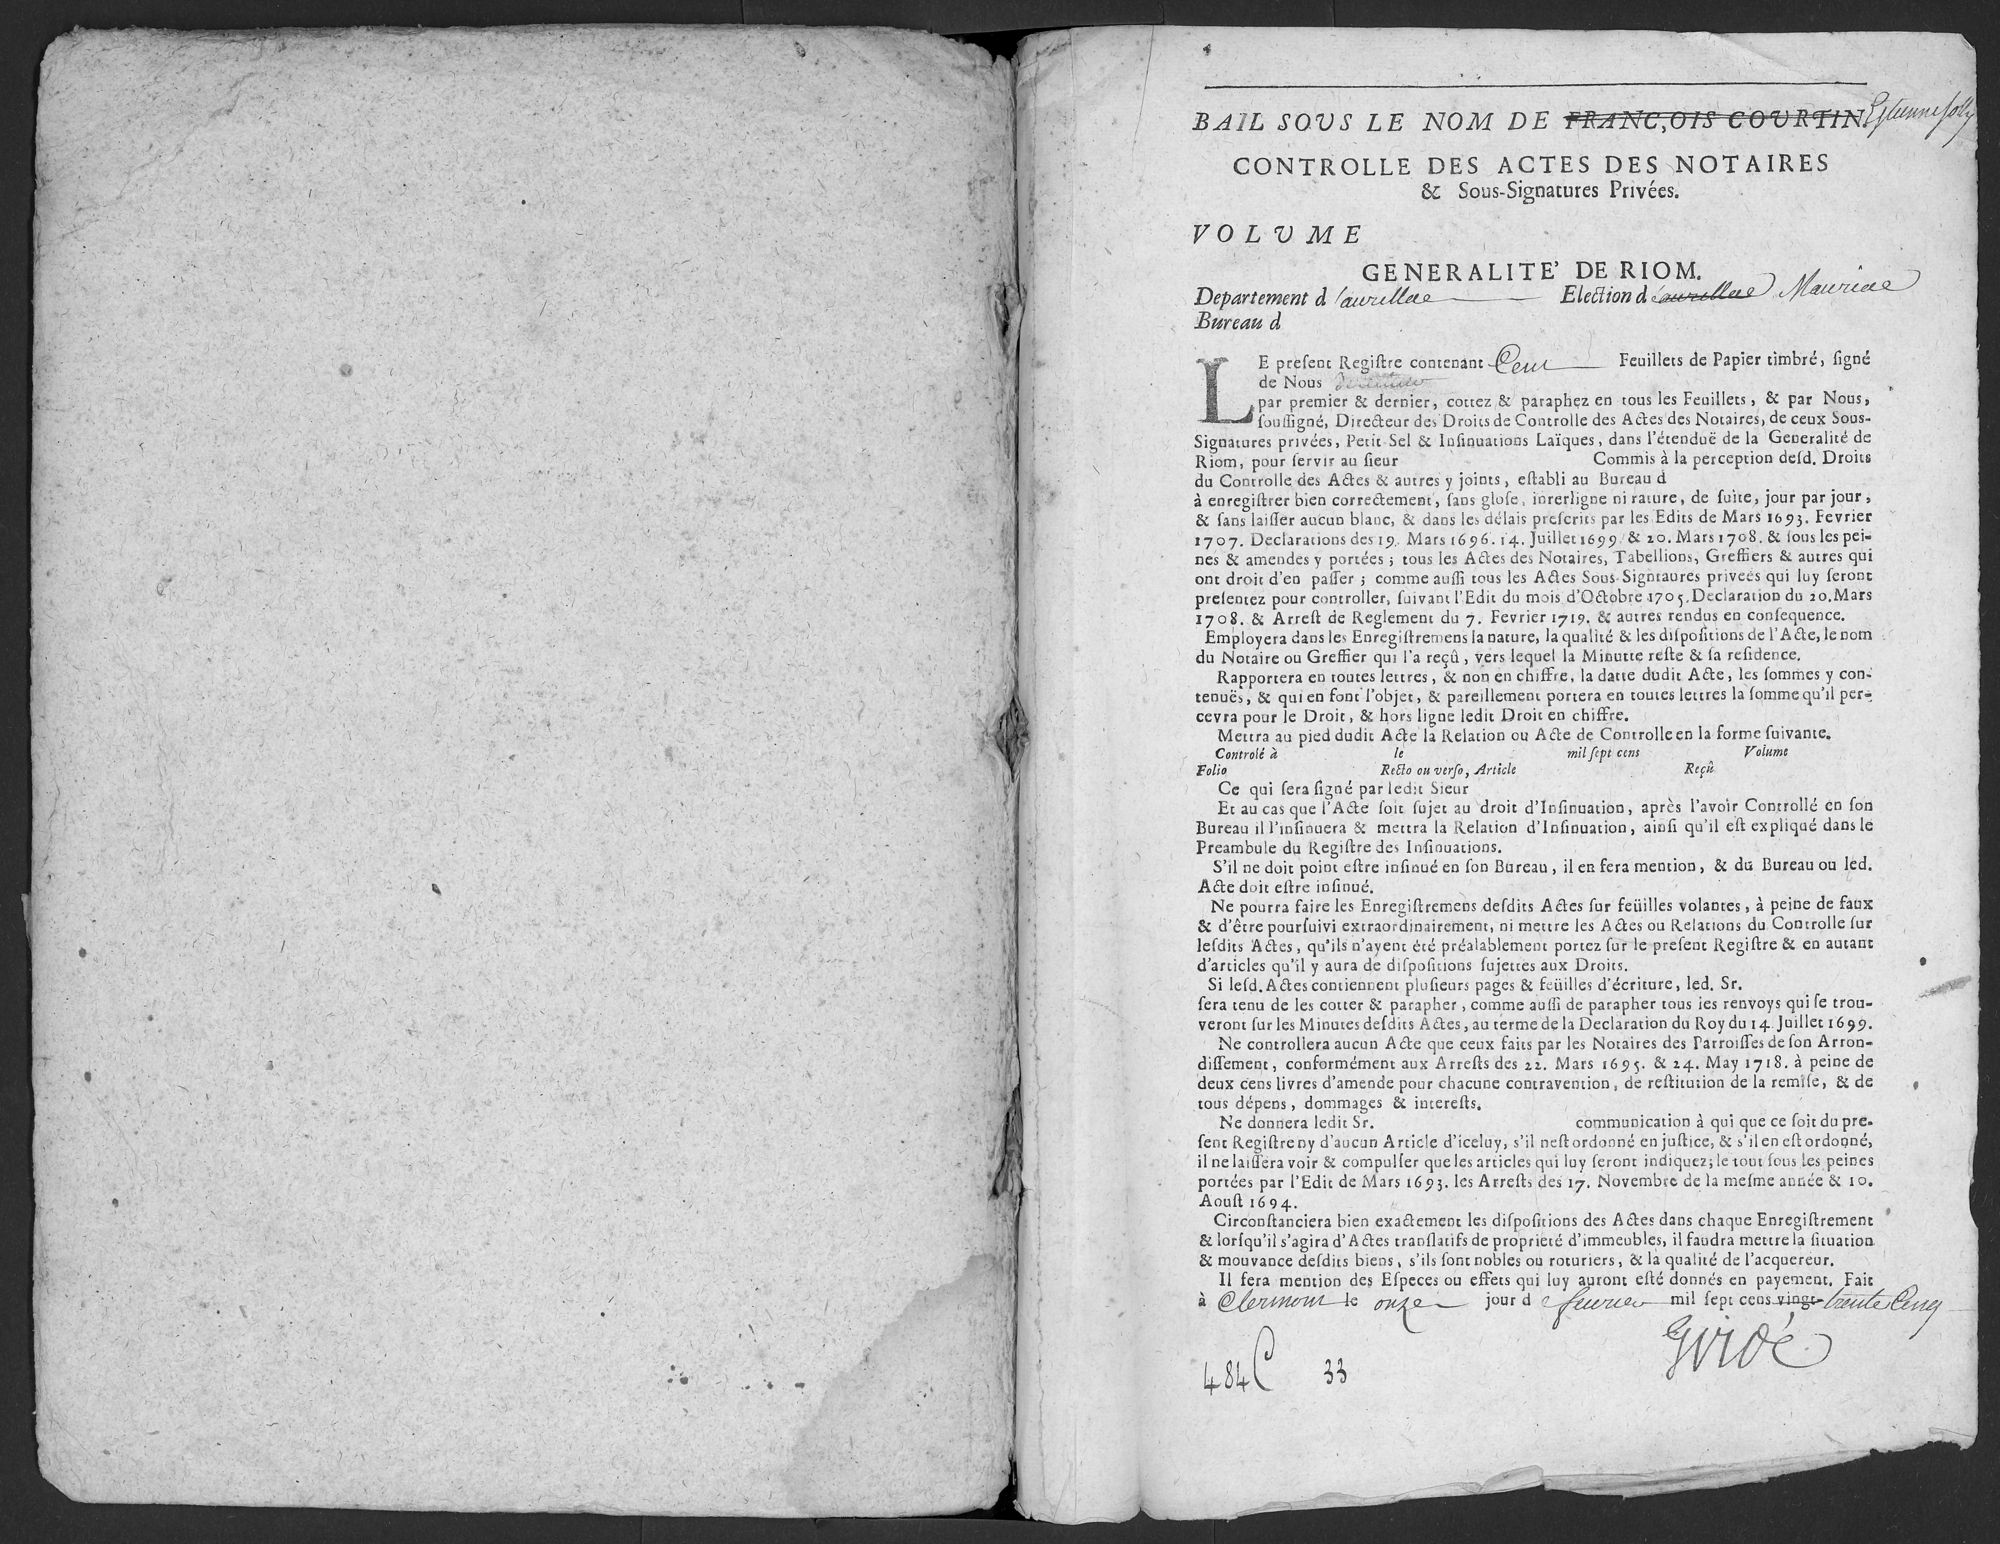 BAIL SOUS LE NOM DE FRANC,OIS COURTIN. Estienne Jolly
CONTROLLE DES ACTES DES NOTAIRES
& Sous-Signatures Privées.
VOLUME
GENERALITE' DE RIOM.
Departement d'aurillac Election d'aurillac Mauriac
Bureau d
LE present Registre contenant Cent Feuillets de Papier timbré, signé
de Nous
par premier & dernier, cottez & paraphez en tous les Feuillets, & par Nous,
soussigné, Directeur des Droits de Controlle des Actes des Notaires, de ceux Sous-
Signatures privées, Petit Sel & Insinuations Laïques, dans l'étenduë de la Generalité de
Riom, pour servir au sieur Commis à la perception desd. Droits
du Controlle des Actes & autres y joints, establi au Bureau d
à enregistrer bien correctement, sans glose, inrerligne ni rature, de suite, jour par jour,
& sans laisser aucun blanc, & dans les délais prescrits par les Edits de Mars 1693. Fevrier
1707. Declarations des 19. Mars 1696. 14. Juillet 1699 & 20. Mars 1708. & sous les pei-
nes & amendes y portées ; tous les Actes des Notaires, Tabellions, Greffiers & autres qui
ont droit d'en passer ; comme aussi tous les Actes Sous-Signtaures privées qui luy seront
presentez pour controller, suivant l'Edit du mois d'Octobre 1705. Declaration du 20. Mars
1708. & Arrest de Reglement du 7. Fevrier 1719. & autres rendus en consequence.
Employera dans les Enregistremens la nature, la qualité & les dispositions de l'Acte, le nom
du Notaire ou Greffier qui l'a reçû, vers lequel la Minutte reste & sa residence.
Rapportera en toutes lettres, & non en chiffre, la datte dudit Acte, les sommes y con-
tenuës, & qui en font l'objet, & pareillement portera en toutes lettres la somme qu'il per-
cevra pour le Droit, & hors ligne ledit Droit en chiffre.
Mettra au pied dudit Acte la Relation ou Acte de Controlle en la forme suivante.
Controlé à le mil sept cens Volume
Folio Recto ou verso, Article Reçû
Ce qui sera signé par ledit Sieur
Et au cas que l'Acte soit sujet au droit d'Insinuation, après l'avoir Controllé en son
Bureau il l'insinuera & mettra la Relation d'Insinuation, ainsi qu'il est expliqué dans le
Preambule du Registre des Insinuations.
S'il ne doit point estre insinué en son Bureau, il en fera mention, & du Bureau ou led.
Acte doit estre insinué.
Ne pourra faire les Enregistremens desdits Actes sur feüilles volantes, à peine de faux
& d'être poursuivi extraordinairement, ni mettre les Actes ou Relations du Controlle sur
lesdits Actes, qu'ils n'ayent été préalablement portez sur le present Registre & en autant
d'articles qu'il y aura de dispositions sujettes aux Droits.
Si lesd. Actes contiennent plusieurs pages & feüilles d'écriture, led. Sr.
sera tenu de les cotter & parapher, comme aussi de parapher tous les renvoys qui se trou-
veront sur les Minutes desdits Actes, au terme de la Declaration du Roy du 14. Juillet 1699.
Ne controllera aucun Acte que ceux faits par les Notaires des Parroisses de son Arron-
dissement, conformément aux Arrests des 22. Mars 1695. & 24. May 1718. à peine de
deux cens livres d'amende pour chacune contravention, de restitution de la remise, & de
tous dépens, dommages & interests.
Ne donnera ledit Sr. communication à qui que ce soit du pre-
sent Registre ny d'aucun Article d'iceluy, s'il nest ordonné en justice, & s'il en est ordonné,
il ne laissera voir & compulser que les articles qui luy seront indiquez; le tout sous les peines
portées par l'Edit de Mars 1693. les Arrests des 17. Novembre de la mesme année & 10.
Aoust 1694.
Circonstanciera bien exactement les dispositions des Actes dans chaque Enregistrement
& lorsqu'il s'agira d'Actes translatifs de proprieté d'immeubles, il faudra mettre la situation
& mouvance desdits biens, s'ils sont nobles ou roturiers, & la qualité de l'acquereur.
Il fera mention des Especes ou effets qui luy auront esté donnés en payement. Fait
à Clermont le onze jour de fevrier mil sept cens vingt- trente Cinq
484 C 33